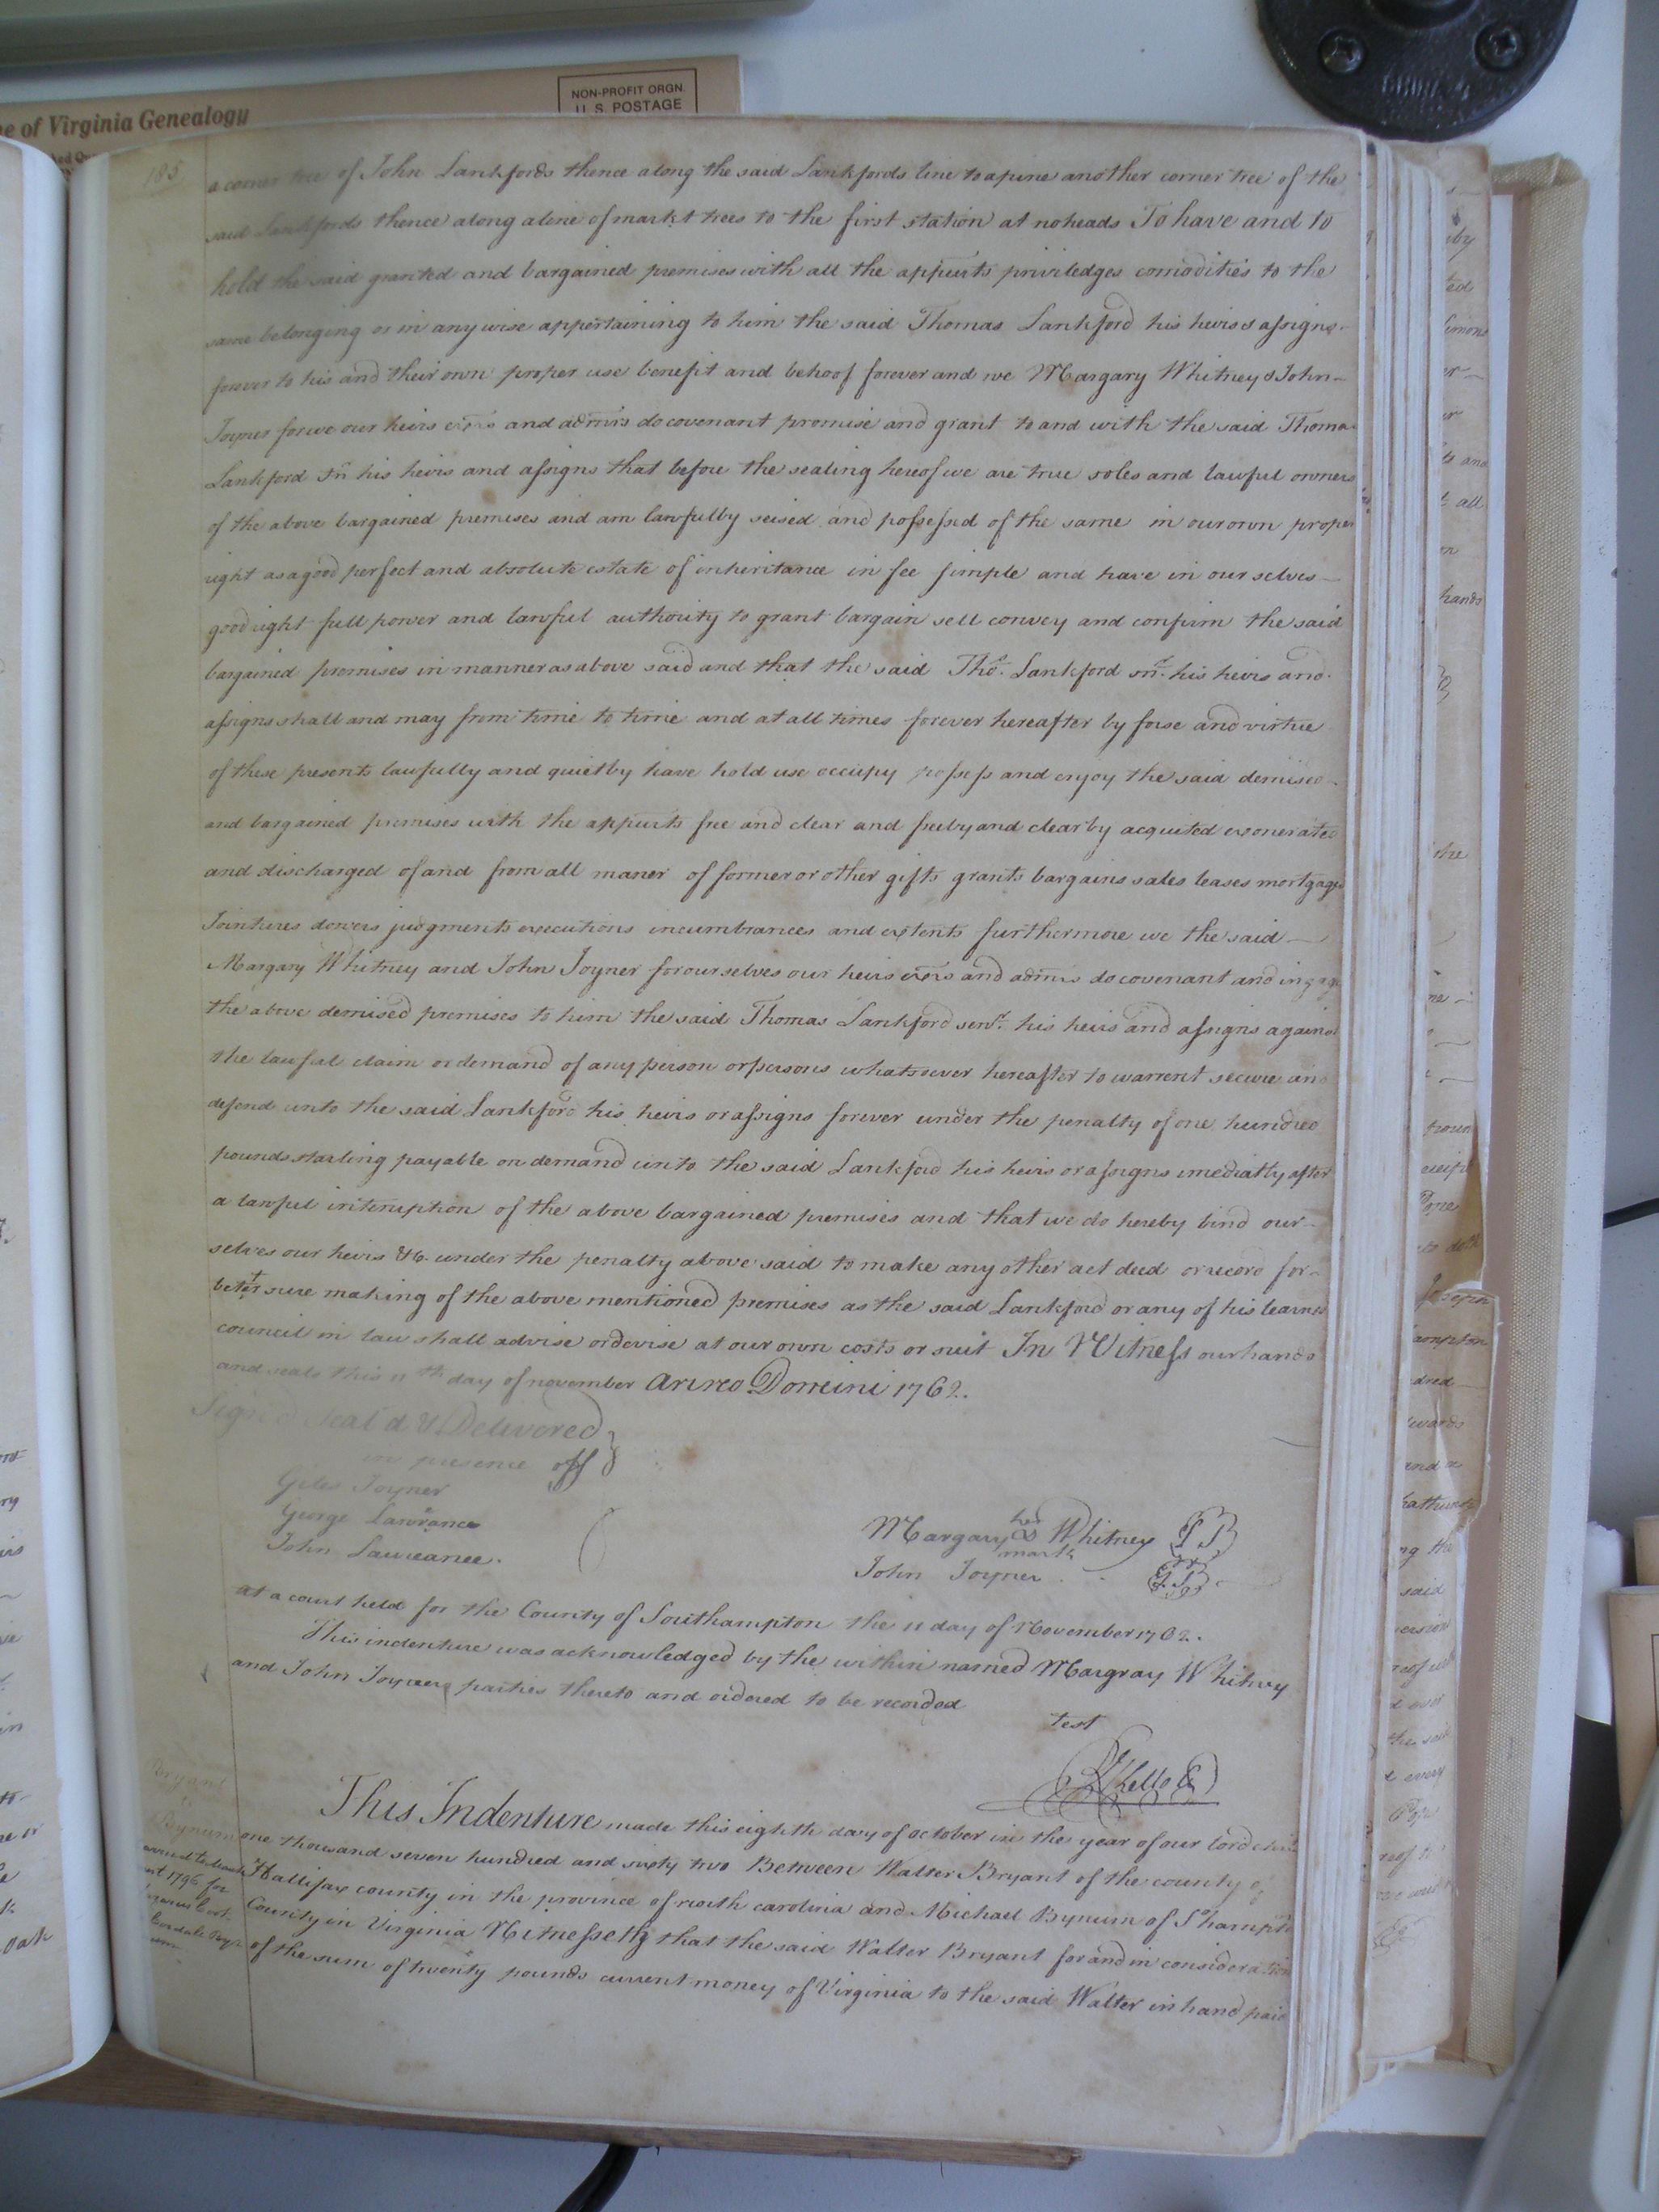 e of Virginia Genealogy
NON-PROFIT ORGN.
U. S. POSTAGE
185
a corner tree of John Lankfords thence along the said Lankfords line to a pine another corner tree of the
said Lankfords thence along a line of markt trees to the first station at noheads To have and to
hold the said granted and bargained premises with all the appurts priviledges comodities to the
same belonging or in any wise appertaining to him the said Thomas Lankford his heirs & assigns
forever to his and their own proper use benefit and behoof forever and we Margary Whitney & John
Joyner for we our heirs exrs and admrs do covenant promise and grant to and with the said Thomas
Lankford Sr his heirs and assigns that before the sealing hereof we are true soles and lawful owners
of the above bargained premises and am lawfully seised and possessed of the same in our own proper
right as a good perfect and absolute estate of inheritance in fee simple and have in our selves
good right full power and lawful authority to grant bargain sell convey and confirm the said
bargained premises in manner as above said and that the said Thos. Lankford snr. his heirs and
assigns shall and may from time to time and at all times forever hereafter by forse and virtue
of these presents lawfully and quietly have hold use occupy possess and enjoy the said demised
and bargained premises with the appurts free and clear and freely and clearly acquited exonerated
and discharged of and from all maner of former or other gifts grants bargains sales leases mortgages
Jointures dowers judgments executions incumbrances and extents furthermore we the said
Margary Whitney and John Joyner for ourselves our heirs exrs and admrs do covenant and ingage
the above demised premises to him the said Thomas Lankford senr. his heirs and assigns against
the lawful claim or demand of any person or persons whatsoever hereafter to warrent secure and
defend unto the said Lankford his heirs or assigns forever under the penalty of one hundred
pounds starling payable on demand unto the said Lankford his heirs or assigns imediatly after
a lawful interuption of the above bargained premises and that we do hereby bind our
selves our heirs &c. under the penalty above said to make any other act deed or record for
better sure making of the above mentioned premises as the said Lankford or any of his learned
council in law shall advise or devise at our own costs or suit In Witness our hands
and seals this 11th day of november Anno Domini 1762.
Sign'd Seal'd & Delivered
in presence off
Giles Joyner
George Lawrance
John Lawreance.
her
Margary Whitney LS
mark
John Joyner LS
at a court held for the County of Southampton the 11 day of November 1762.
This indenture was acknowledged by the within named Margray Whitney
and John Joyner parties thereto and ordered to be recorded
test
R Kello C
This Indenture made this eighth day of october in the year of our lord christ
one thousand seven hundred and sixty two Between Walter Bryant of the county of
Hallifax county in the province of north carolina and Michael Bynum of Shampton
County in Virginia Witnesseth that the said Walter Bryant for and in consideration
of the sum of twenty pounds current money of Virginia to the said Walter in hand paid
Bryant
Bynum
1796 for